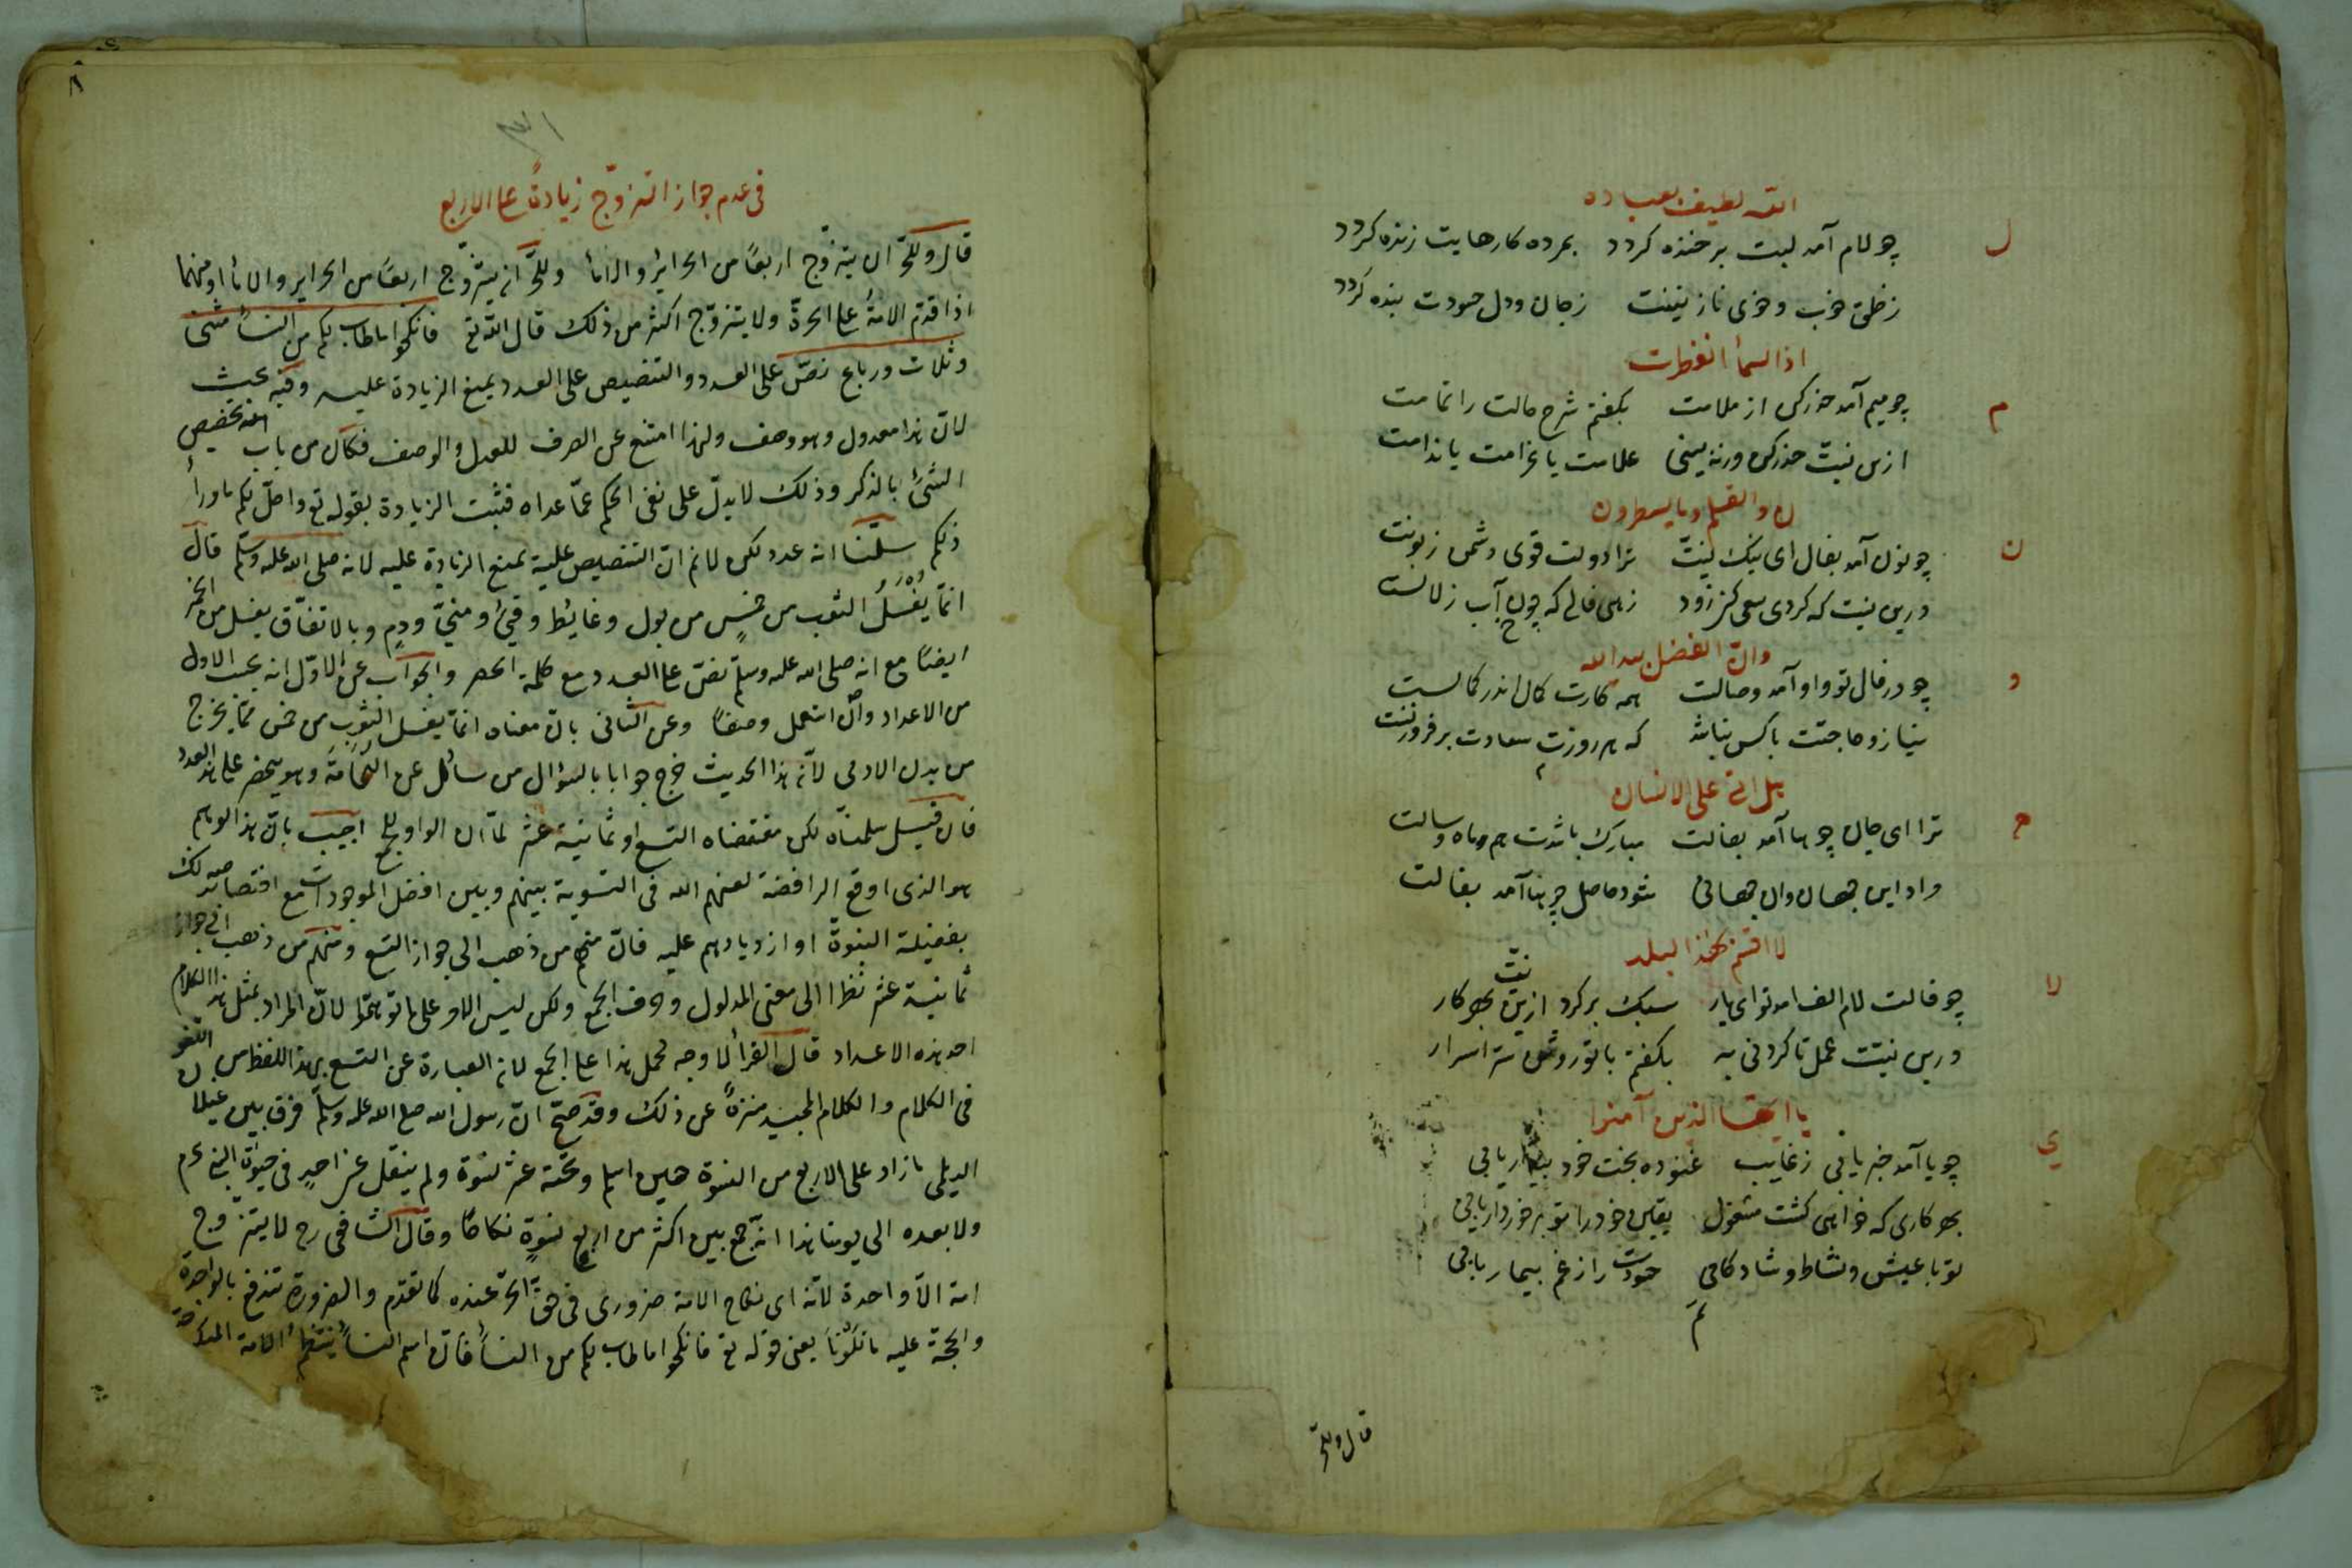 الله لطیف بعباده
ل
چو لام آمد لبت پر خنده کردد بمرده کارهایت زنده کردد
ز خلق خوب و خوی نازنینت ز جان ودل حسودت بنده کردد
اذا السمأ انفطرت
م
چو میم آمد حذر کن از ملامت بکفتم شرح حالت را تمامت
ازین نیت حذر کن ورنه بینی علامت یا غرامت یا ندامت
ن والقلم وما یسطرون
ن
چو نون آمد بفال ای نیک نیت ترا دولت قوی دشمن زبونت
درین نیت که کردی سعی کن زود زهی فالی که چون آب زلالست
وان الفضل بید الله
و
چو در فال تو واو آمد وصالت همه کارت کال اندر کمالست
نیاز و حاجتت با کس نباشد که هر روزت سعادت بر فزونت
هل اتی علی الانسان
ه
ترا ای جان چو ها آمد بفالت مبارک باشدت هم ماه وسالت
مراد این جهان وان جهانی شود حاصل چو ها آمد بفالت
لا اقسم بهذا البلد
لا
چو فالت لام الف امد توای یار سبک برکرد ازین نیت بهر کار
درین نیت عمل ناکردنی به بکفتم با تو روشن سر اسرار
یا ایها الذین آمنوا
ی
چو یا آمد خبر یابی ز غایب غنوده بخت خود بیدار یابی
بهر کاری که خواهی کشت مشغول یقین خود را تو برخوردار یابی
تو با عیش ونشاط و شاد کامی حسودت را ز غم بیمار یابی
تم
قال وللحر
٨
فی عدم جواز التزوّج زیادةً علی الاربع
قال وللحرّ ان یتزوّج اربعًا من الحرائر والامأ وللحرّ ان یتزوّج اربعًا من الحرایر والامأ او منهما
اذا قدم الامةُ علی الحرة ولا یتزوّج اکثر من ذلک قال الله تع فانکحوا ما طاب لکم من النسأ مثنی
وثلاث ورباع نصّ علی العدد والتنصیص علی العدد یمنع الزیادة علیه وفیه بحیث
لان هذا معدول وهو وصف ولهذا امتنع عن الصرف للعدل والوصف فکان من باب تخصیص
الشئ بالذکر وذلک لا یدلّ علی نفی الحکم عمّا عداه فثبت الزیادة بقوله تع واحلّ لکم ما ورأ
ذلکم سلّمنا انه عدد لکن لانم ان التنصیص علیه یمنع الزیادة علیه لانه صلی الله علیه وسلّم قال
انما یُغسلُ الثوب من خمسٍ من بول وغایط وقیئ ومنیّ ودمٍ وبالاتفاق یغسل من الخمر
ایضًا مع انه صلی الله علیه وسلّم نصّ علی العدد مع کلمة الحصر والجواب عن الاوّل انه بحسب الاول
من الاعداد وان استعمل وصفًا وعن الثانی بان معناه انما یغسل الثوب من خمس ممّا یخرج
من بدن الادمی لانّه هذا الحدیث خرج جوابا بالسؤال من سائل عن النُخَامَةَ وهو منحصر علی هذ العدد
فان قیل سلمناه لکن مقتضاه التسع او ثمانیة عشر لمّا ان الواو للجمع اجیب بانّ هذا الوهم
هو الذی اوقع الرافضة لعنهم الله فی التسویة بینهم وبین افضل الموجودات مع اختصاصه
بفضیلة النبوة او ازدیادهم علیه فانّ منهم من ذهب الی جواز التسع ومنهم من ذهب الی جواز
ثمانیة عشر نظرا الی معنی المدلول وحرف الجمع ولکن لیس الامر علی ما توهموا لانّ المراد بمثل هذا الکلام
احد هذه الاعداد قال الفرأ لا وجه لحمل هذا علی الجمع لانه العبارة عن التسع بهذا اللفظ من
فی الکلام والکلام المجید منزهً عن ذلک وقد صح انّ رسول الله صلی الله علیه وسلّم فرق بین غیلان
الدیلی ما زاد علی الاربع من النسوة حین اسلم وتحته عشر نسوة ولم ینقل عن احدٍ فی حیوة النبی عم
ولا بعده الی یومنا هذا انه جمع بین اکثر من اربع نسوةٍ نکاحًا وقال الشافعی رح لا یتزوج
امة الاّ واحدة لانّه ای نکاح الامة ضروری فی حق الحرّ عنده کما تقدم والضرورة تندفع بالواحدة
والحجة علیه ما تلونا یعنی قوله تع فانکحوا ما طاب لکم من النسأ فان اسم النسأ ینتظم الامة المنکوحة